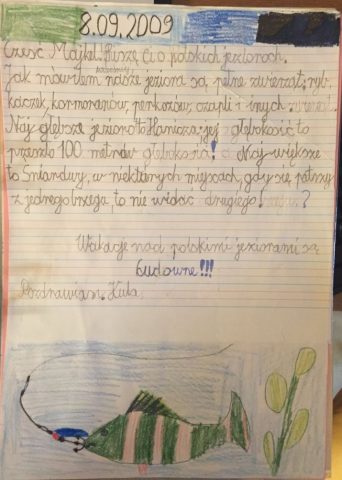 8.09.2009
Cześć Majkel. Piszę Ci o polskich jeziorach.
Jak mówiłem nasze jeziora są pełne zwierząt; ryb,
kaczek, kormoranów, perkozów, czapli i innych
Naj głębsze jezioro to Hańcza; jej głębokość to
przeszło 100 metrów głębokości! a Naj większe
to Śniardwy, w niektórych miejscach, gdy się patrzy
z jednego brzega, to nie widać drugiego!
Wakacje nad polskimi jeziorami są
budowne!!!
Pozdrawiam. Kuba.